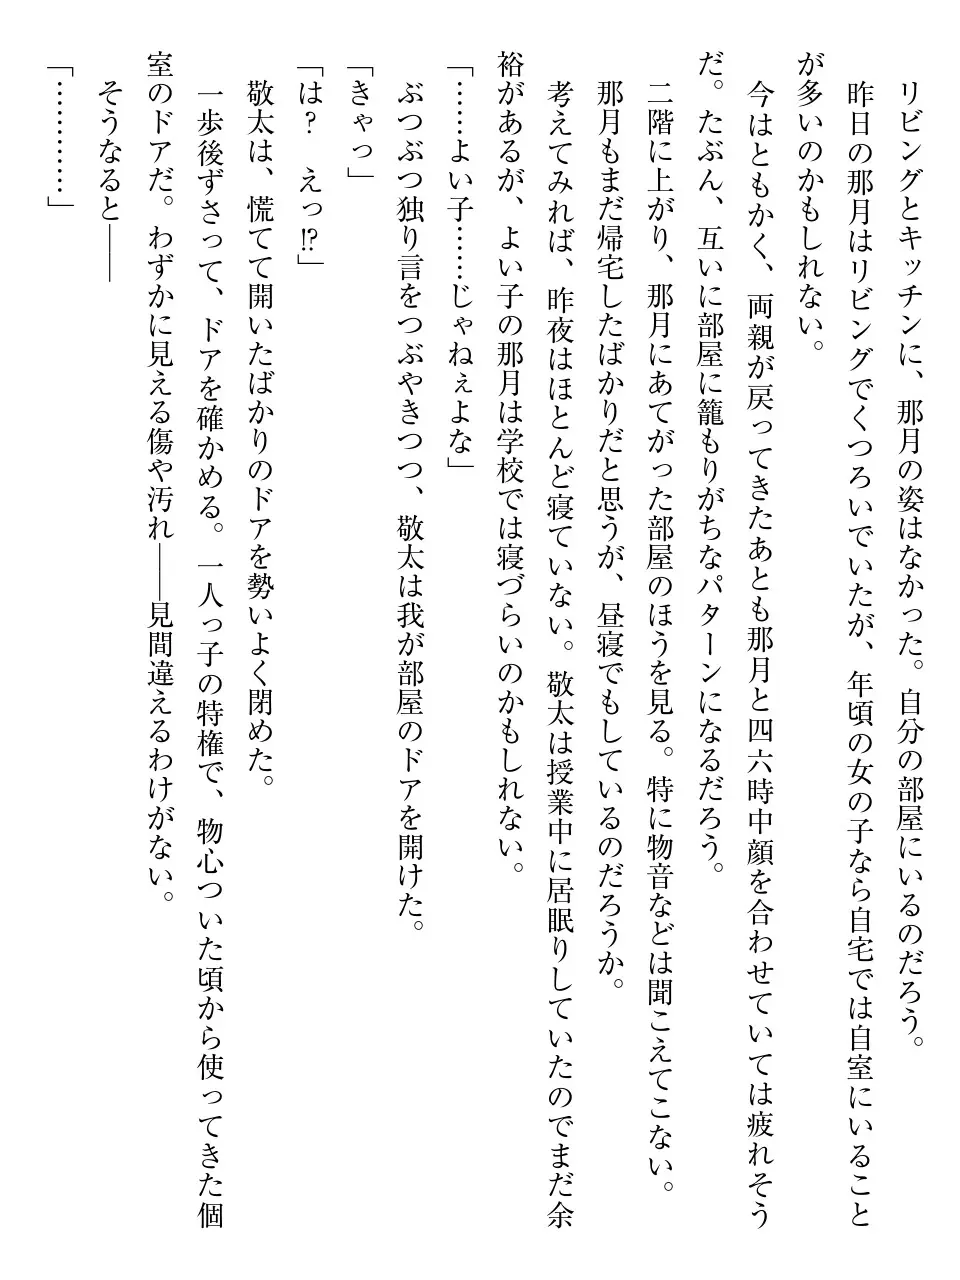 リビングとキッチンに、那月の姿はなかった。自分の部屋にいるのだろう。
昨日の那月はリビングでくつろいでいたが、年頃の女の子なら自宅では自室にいること
が多いのかもしれない。
今はともかく、両親が戻ってきたあとも那月と四六時中顔を合わせていては疲れそう
だ。たぶん、互いに部屋に籠もりがちなパターンになるだろう。
二階に上がり、那月にあてがった部屋のほうを見る。特に物音などは聞こえてこない。
那月もまだ帰宅したばかりだと思うが、昼寝でもしているのだろうか。
考えてみれば、昨夜はほとんど寝ていない。敬太は授業中に居眠りしていたのでまだ余
裕があるが、よい子の那月は学校では寝づらいのかもしれない。
「……よい子……じゃねぇよな」
ぶつぶつ独り言をつぶやきつつ、敬太は我が部屋のドアを開けた。
「きゃっ」
「は？　えっ!?」
敬太は、慌てて開いたばかりのドアを勢いよく閉めた。
一歩後ずさって、ドアを確かめる。一人っ子の特権で、物心ついた頃から使ってきた個
室のドアだ。わずかに見える傷や汚れ――見間違えるわけがない。
そうなると――
「…………」